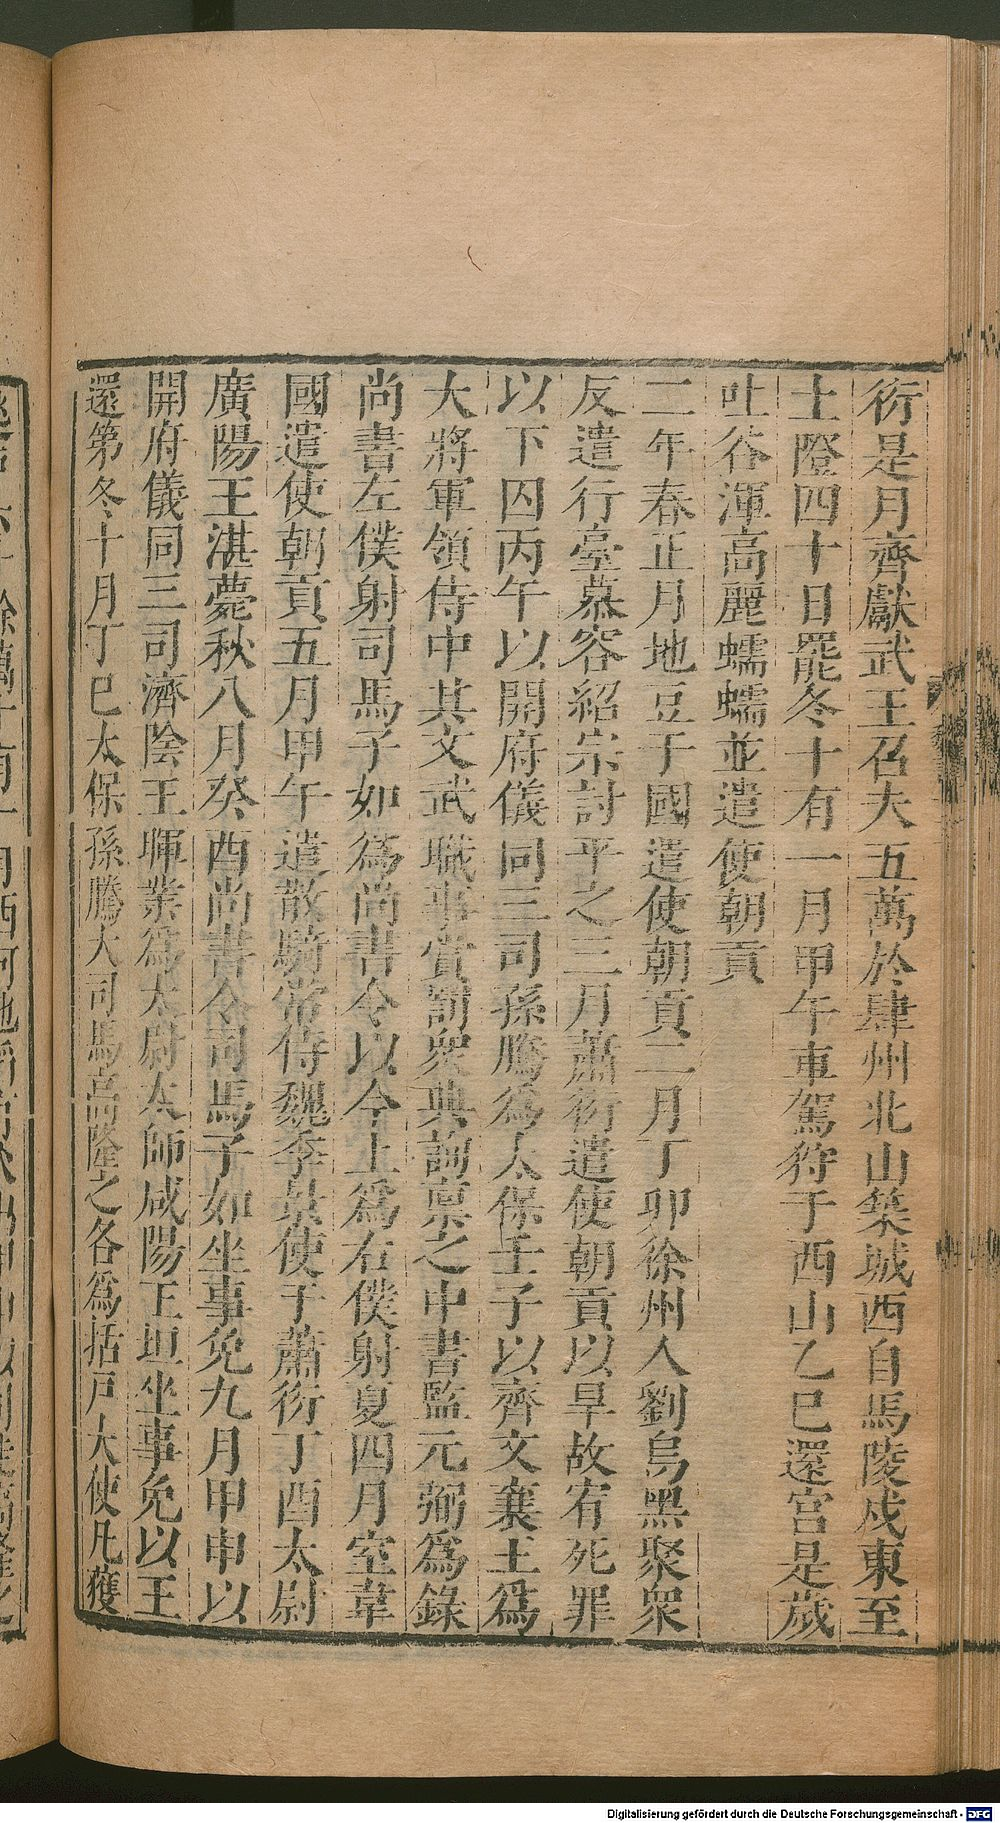 衍是月齊獻武王召夫五萬於肆州北山築城西自馬陵戍東至
土隥四十日罷冬十有一月甲午車駕狩于西山乙巳還宮是歲
吐谷渾高麗蠕蠕並遣使朝貢
二年春正月地豆于國遣使朝貢二月丁卯徐州人劉烏黑聚衆
反遣行臺慕容紹宗討平之三月蕭衍遣使朝貢以旱故宥死罪
以下囚丙午以開府儀同三司孫騰爲太保壬子以齊文襄王爲
大將軍領侍中其文武職事賞罰衆典詢稟之中書監元弼爲錄
尚書左僕射司馬子如爲尚書令以今上爲右僕射夏四月室韋
國遣使朝貢五月甲午遣散騎常侍魏季景使于蕭衍丁酉太尉
廣陽王湛薨秋八月癸酉尚書令司馬子如坐事免九月甲申以
開府儀同三司濟陰王暉業爲太尉太師咸陽王坦坐事免以王
還第冬十月丁巳太保孫騰大司馬高隆之各爲括戶大使凡獲
Digitalisierung gefördert durch die Deutsche Forschungsgemeinschaft - DFG